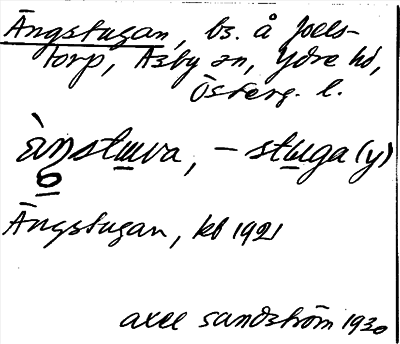 Ängstugan, bs. å Joels-
torp, Asby sn, Ydre hd,
Österg. l.
ànstɯva, – stɯga (y)
ò
Ängstugan, kb 1921
axel sandström 1930